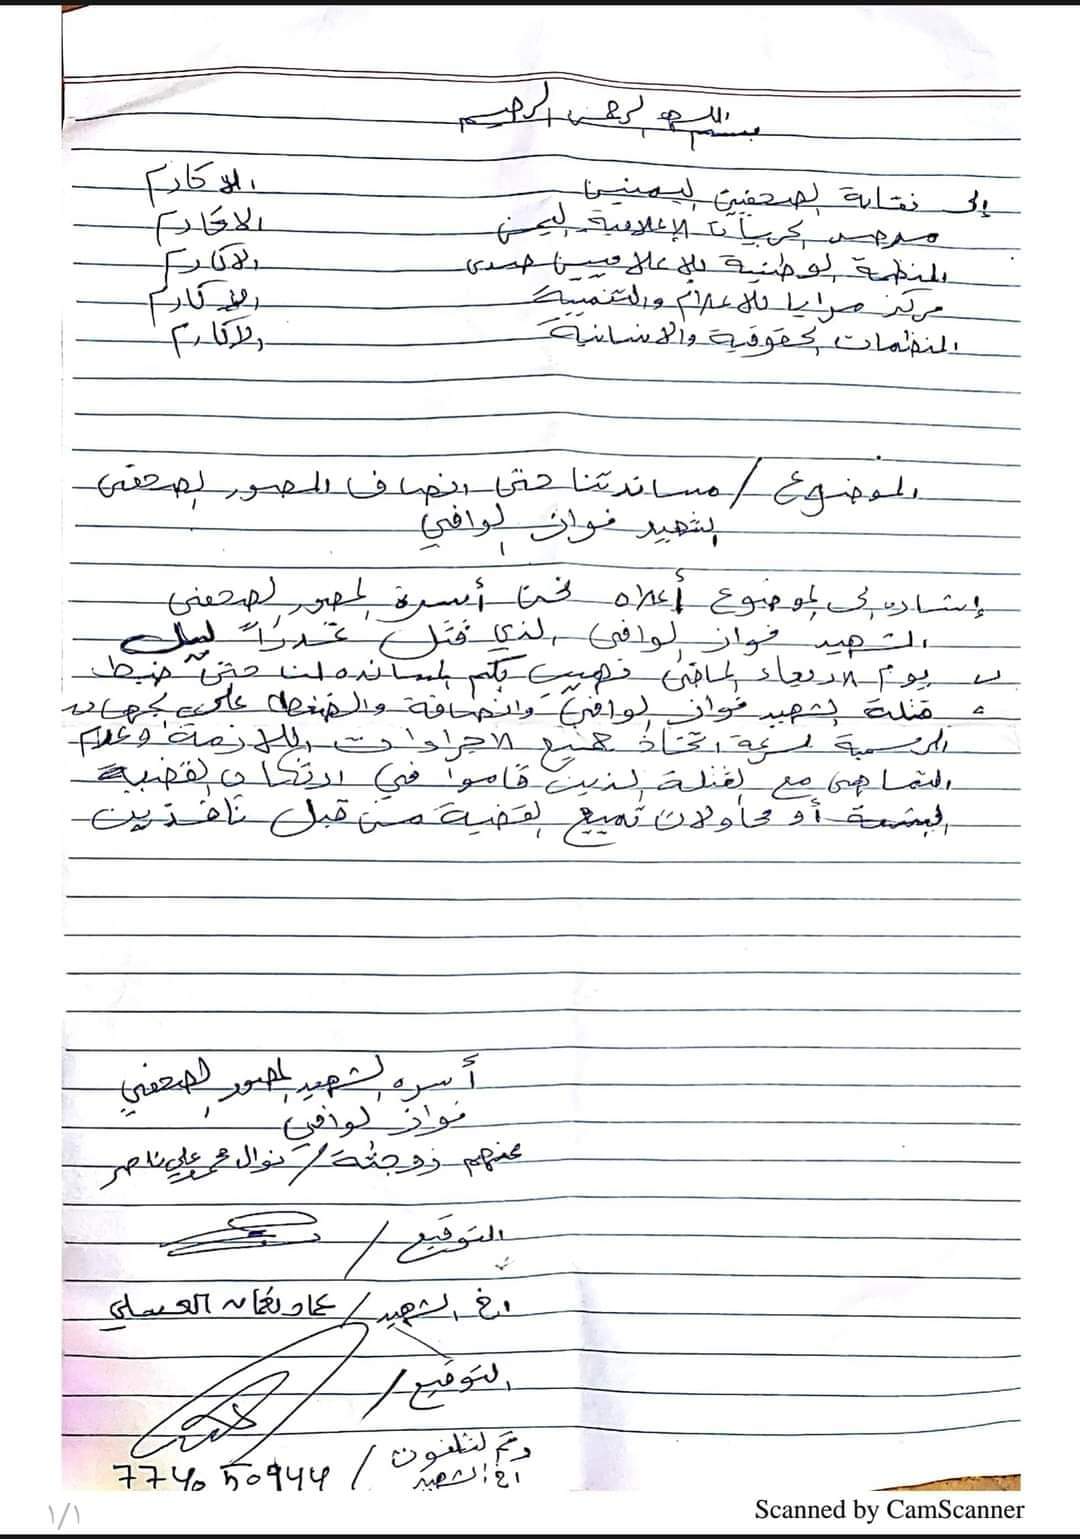 بسم الله الرحمن الرحيم
إلى نقابة الصحفيين اليمنيين الاكارم
مرصد الحريات الإعلامية اليمن الاكارم
المنظمة الوطنية للاعلاميين صدى الاكارم
مركز مرايا للاعلام والتنمية الاكارم
المنظمات الحقوقية والانسانية الاكارم
الموضوع / مساندتنا حتى انصاف المصور الصحفي
الشهيد فواز الوافي
إشاره إلى الموضوع أعلاه نحن أسرة المصور الصحفي
الشهيد فواز الوافي الذي قتل غدراً ليل
يوم الاربعاء الماضي نهيب بكم المسانده لنا حتى ضبط
قتلة الشهيد فواز الوافي وانصافة والضغط على الجهات
الرسمية لسرعة اتخاذ جميع الاجراءات اللازمة وعدم
التماهي مع القتلة الذين قاموا في ارتكاب القضية
البشعة أو محاولات تمييع القضية من قبل نافذين
أسره الشهيد المصور الصحفي
فواز الوافي
عنهم زوجته / نوال محمد علي ناصر
التوقيع /
اخ الشهيد / عماد نعمان العسلي
التوقيع /
رقم لتلفون /
اخ الشهيد
Scanned by CamScanner
١/١